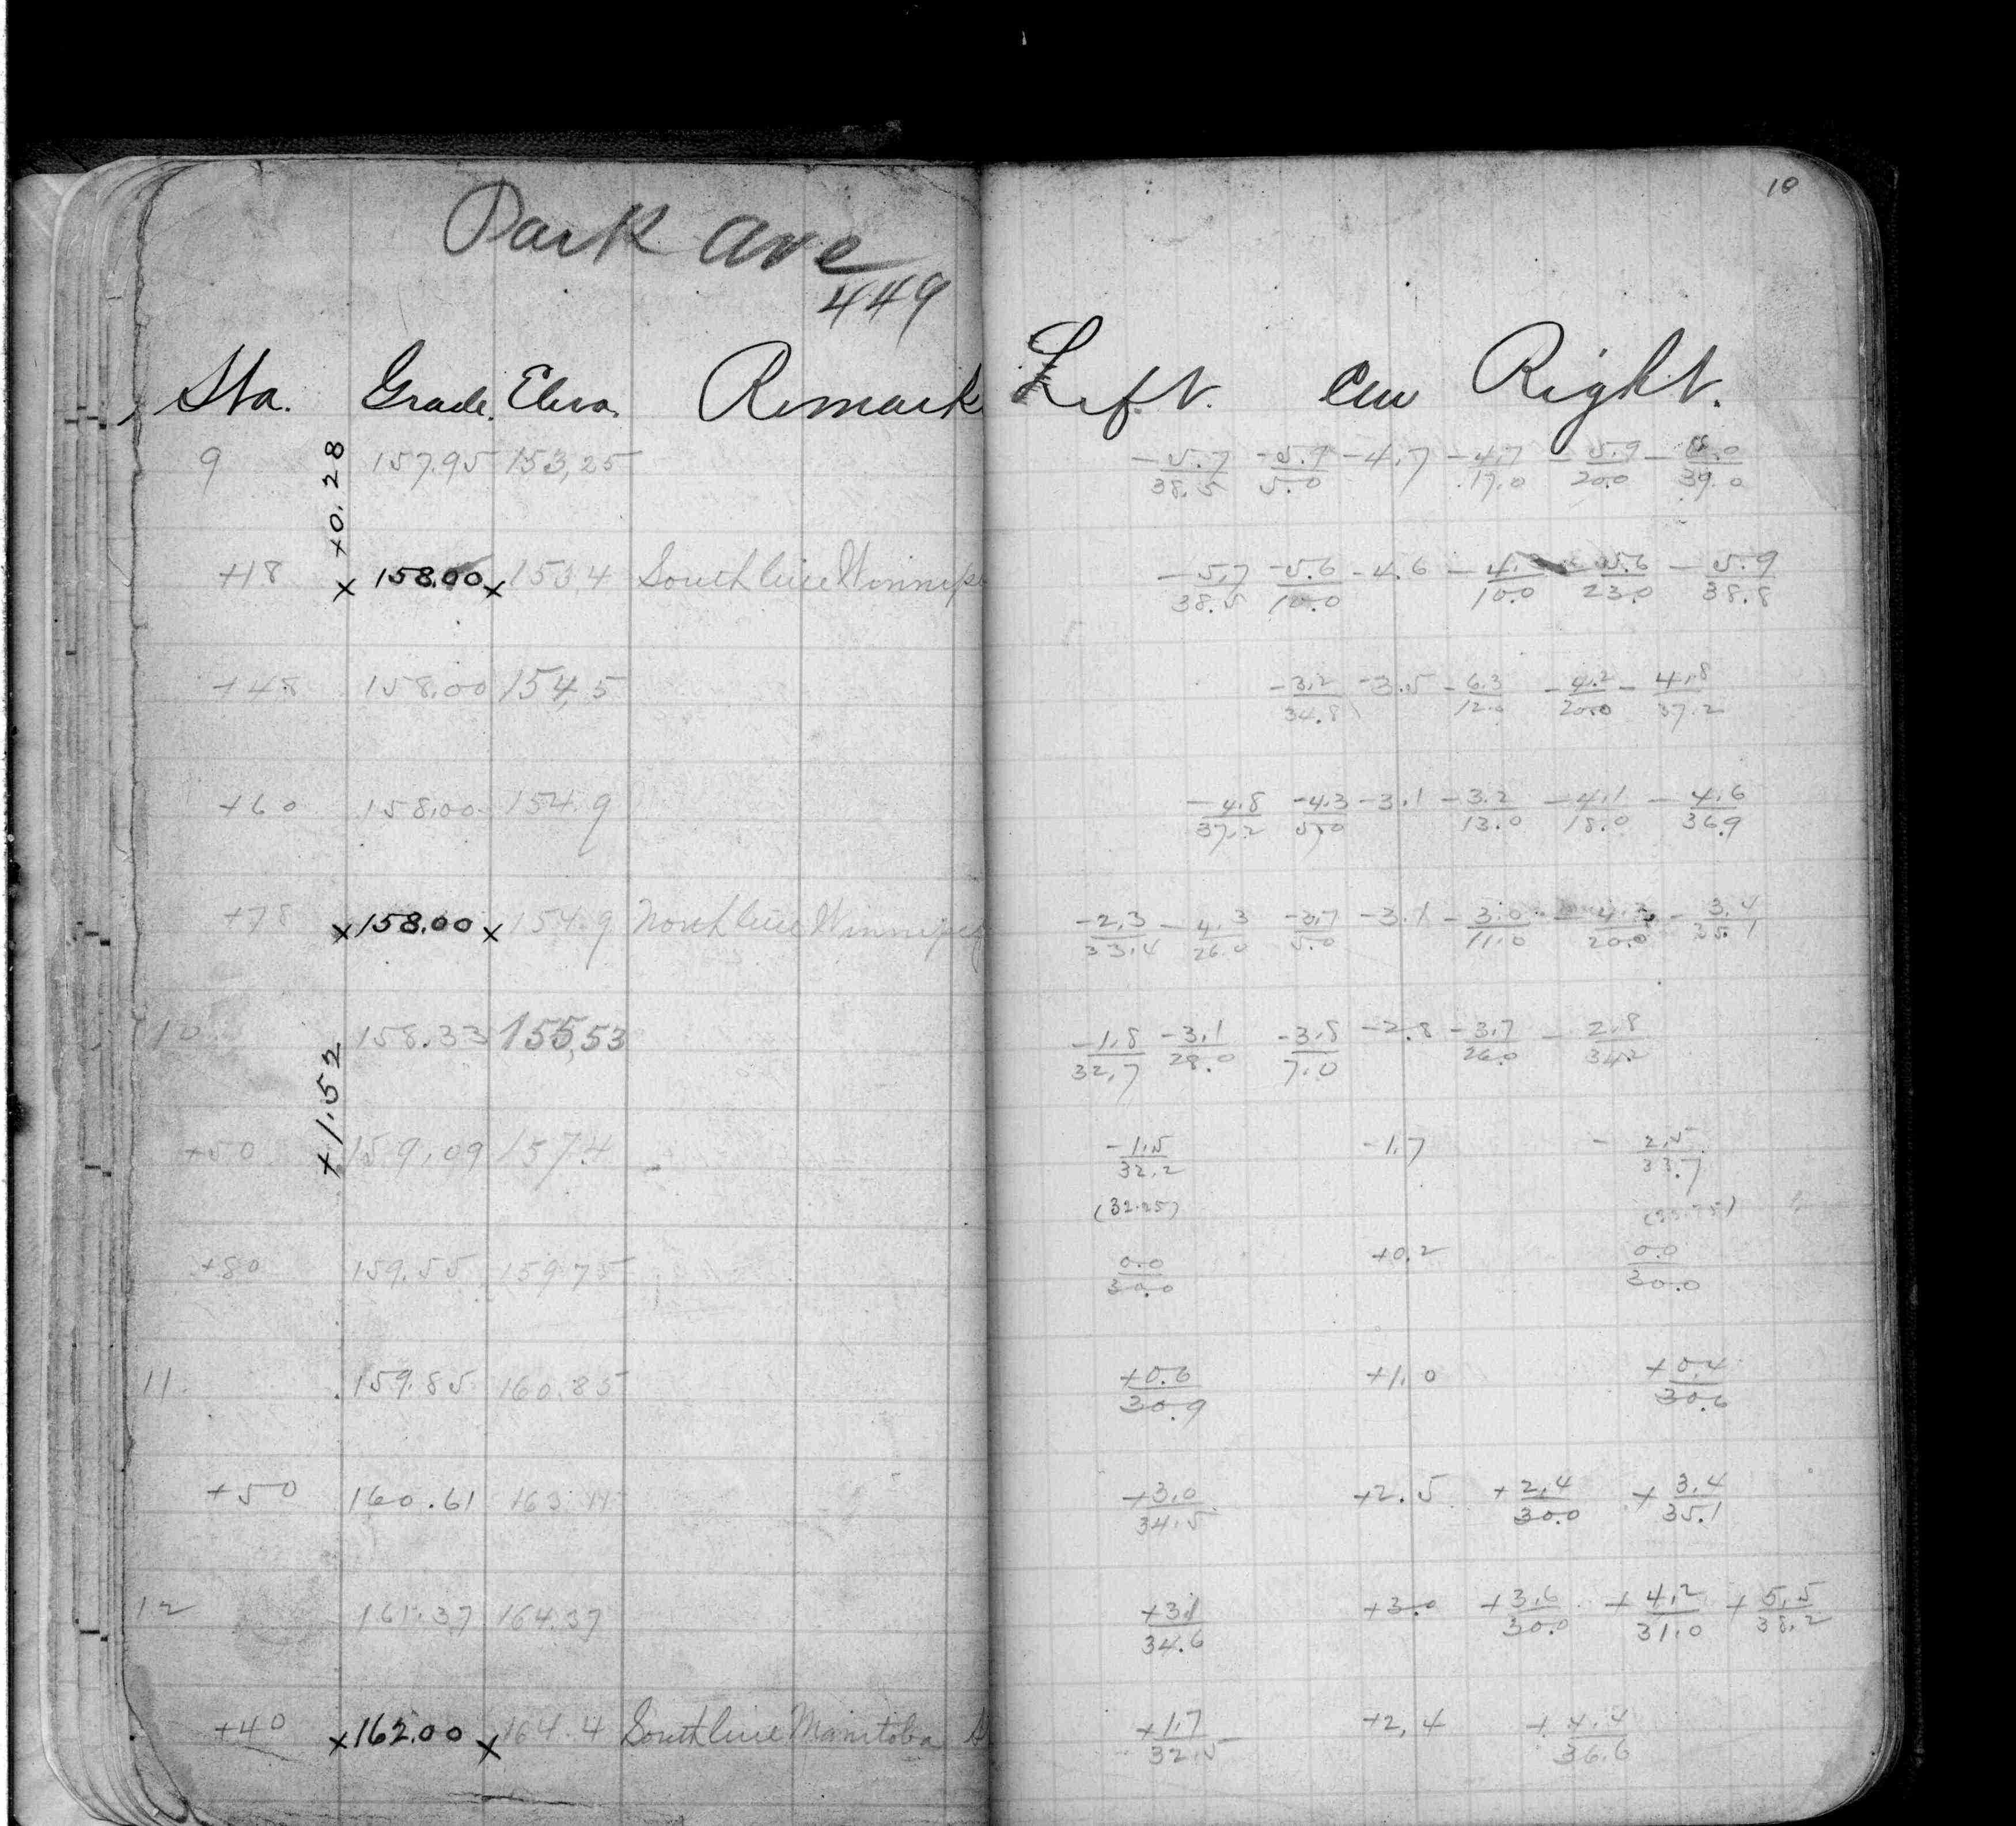 10
Park Ave
449
Sta. Grade. Eleva. Remark Left. Cen Right.
+0.28
9 157.95 153,25 -5.7/38.5 -5.9/5.0 -4.7 -4.7/17.0 -5.9/20.0 -6.0/39.0
+18 x 158.00 x 153,4 South line Winnipe -5.7/38.5 -5.6/10.0 -4.6 /10.0 -5.6/23.0 -5.9/38.8
+48 158.00 154,5 -3.2/34.8 -3.5 -6.3/12.0 -4.2/20.0 -4.8/37.2
+60 158.00 154.9 -4.8/37.2 -4.3/5.0 -3.1 -3.2/13.0 -4.1/18.0 -4.6/36.9
+78 x 158.00 x 154.9 North line Winnipeg -2.3/33.4 -4.3/26.0 -3.7/5.0 -3.1 -3.0/11.0 -4.3/20.0 -3.4/35.1
10 158.33 155,53 -1.8/32.7 -3.1/28.0 -3.8/7.0 -2.8 -3.7/26.0 -2.8/34.2
+1.52
+50 159.09 157.4 -1.5/32.2 -1.7 -2.5/33.7
(32.25) (33.75)
+80 159.55 159.75 0.0/30.0 +0.2 0.0/30.0
11 159.85 160.85 +0.6/30.9 +1.0 +0.4/30.6
+50 160.61 163.11 +3.0/34.5 +2.5 +2.4/30.0 +3.4/35.1
12 161.37 164.37 +3.1/34.6 +3.0 +3.6/30.0 +4.2/31.0 +5.5/38.2
+40 x 162.00 x 164.4 South line Manitoba +1.7/32.5 +2,4 +4.4/36.6